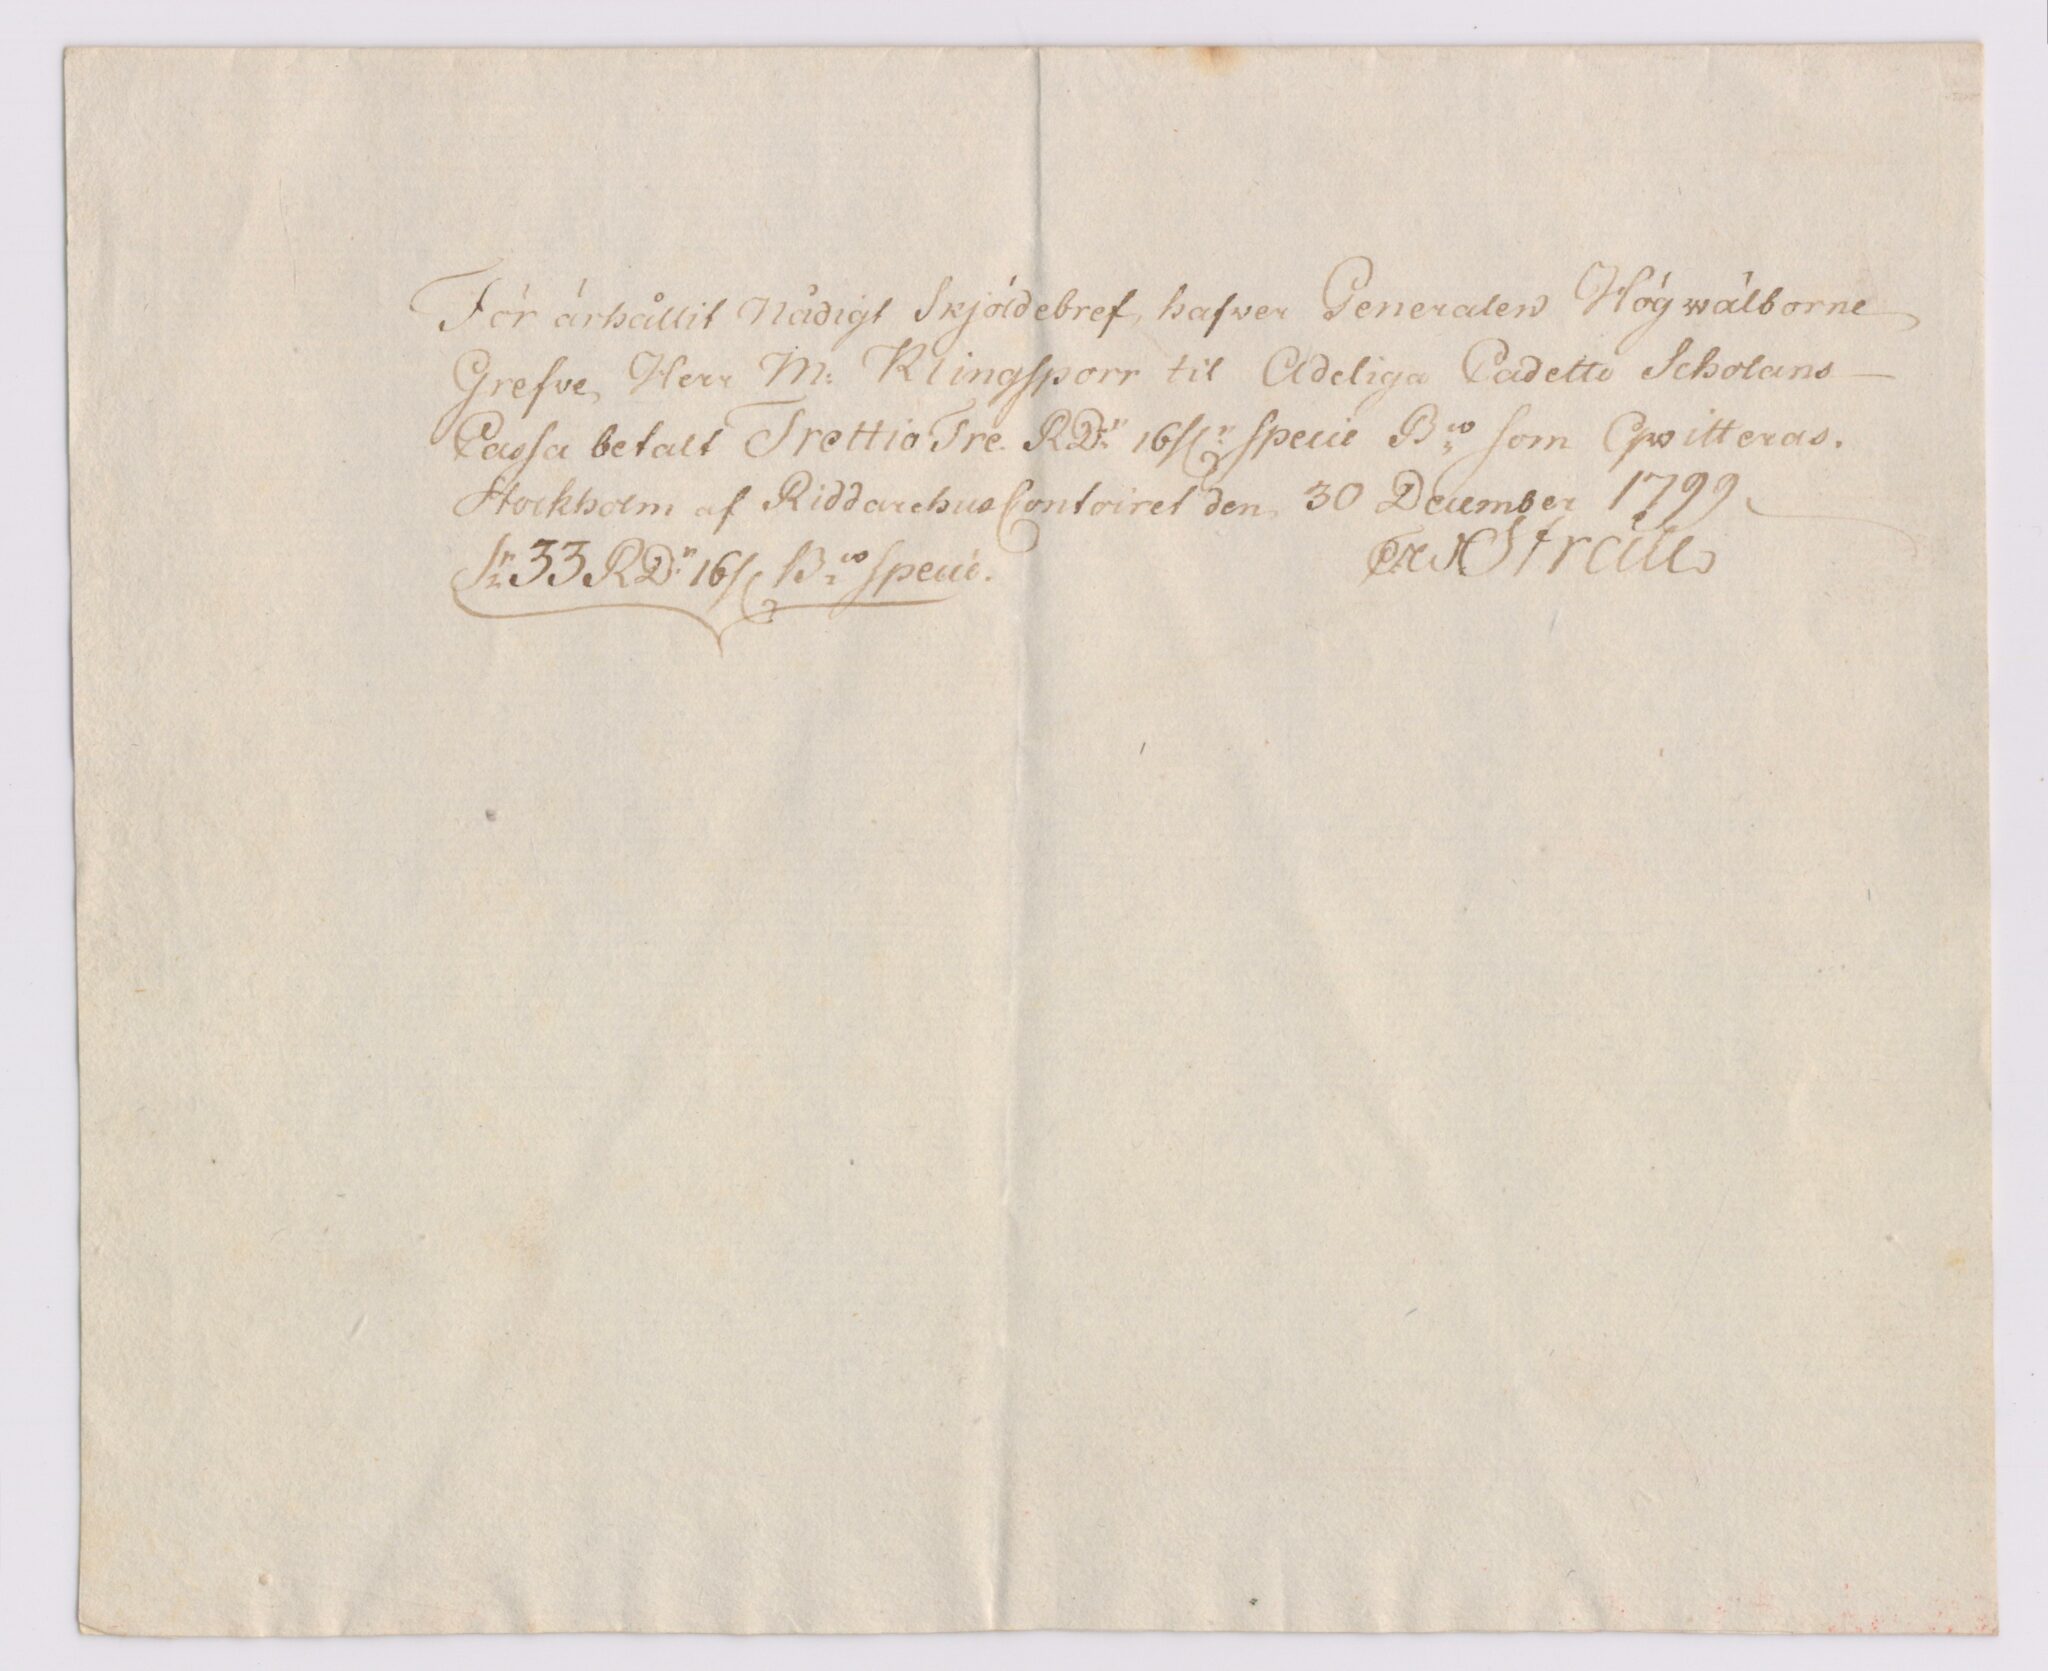 För ärhållit Nådigt Skjöldebref, hafver Generalen Högwälborne
Grefve, Herr M: Klingsporr til Adeliga Cadette Scholans
Cassa betalt Trettio Tre RDr 16 sl. Specie Bco som Qwitteras.
Stockholm af Riddarehus Contoiret den 30 December 1799
Sr 33 RDr 16 sl. Bco Specie.
Stråle